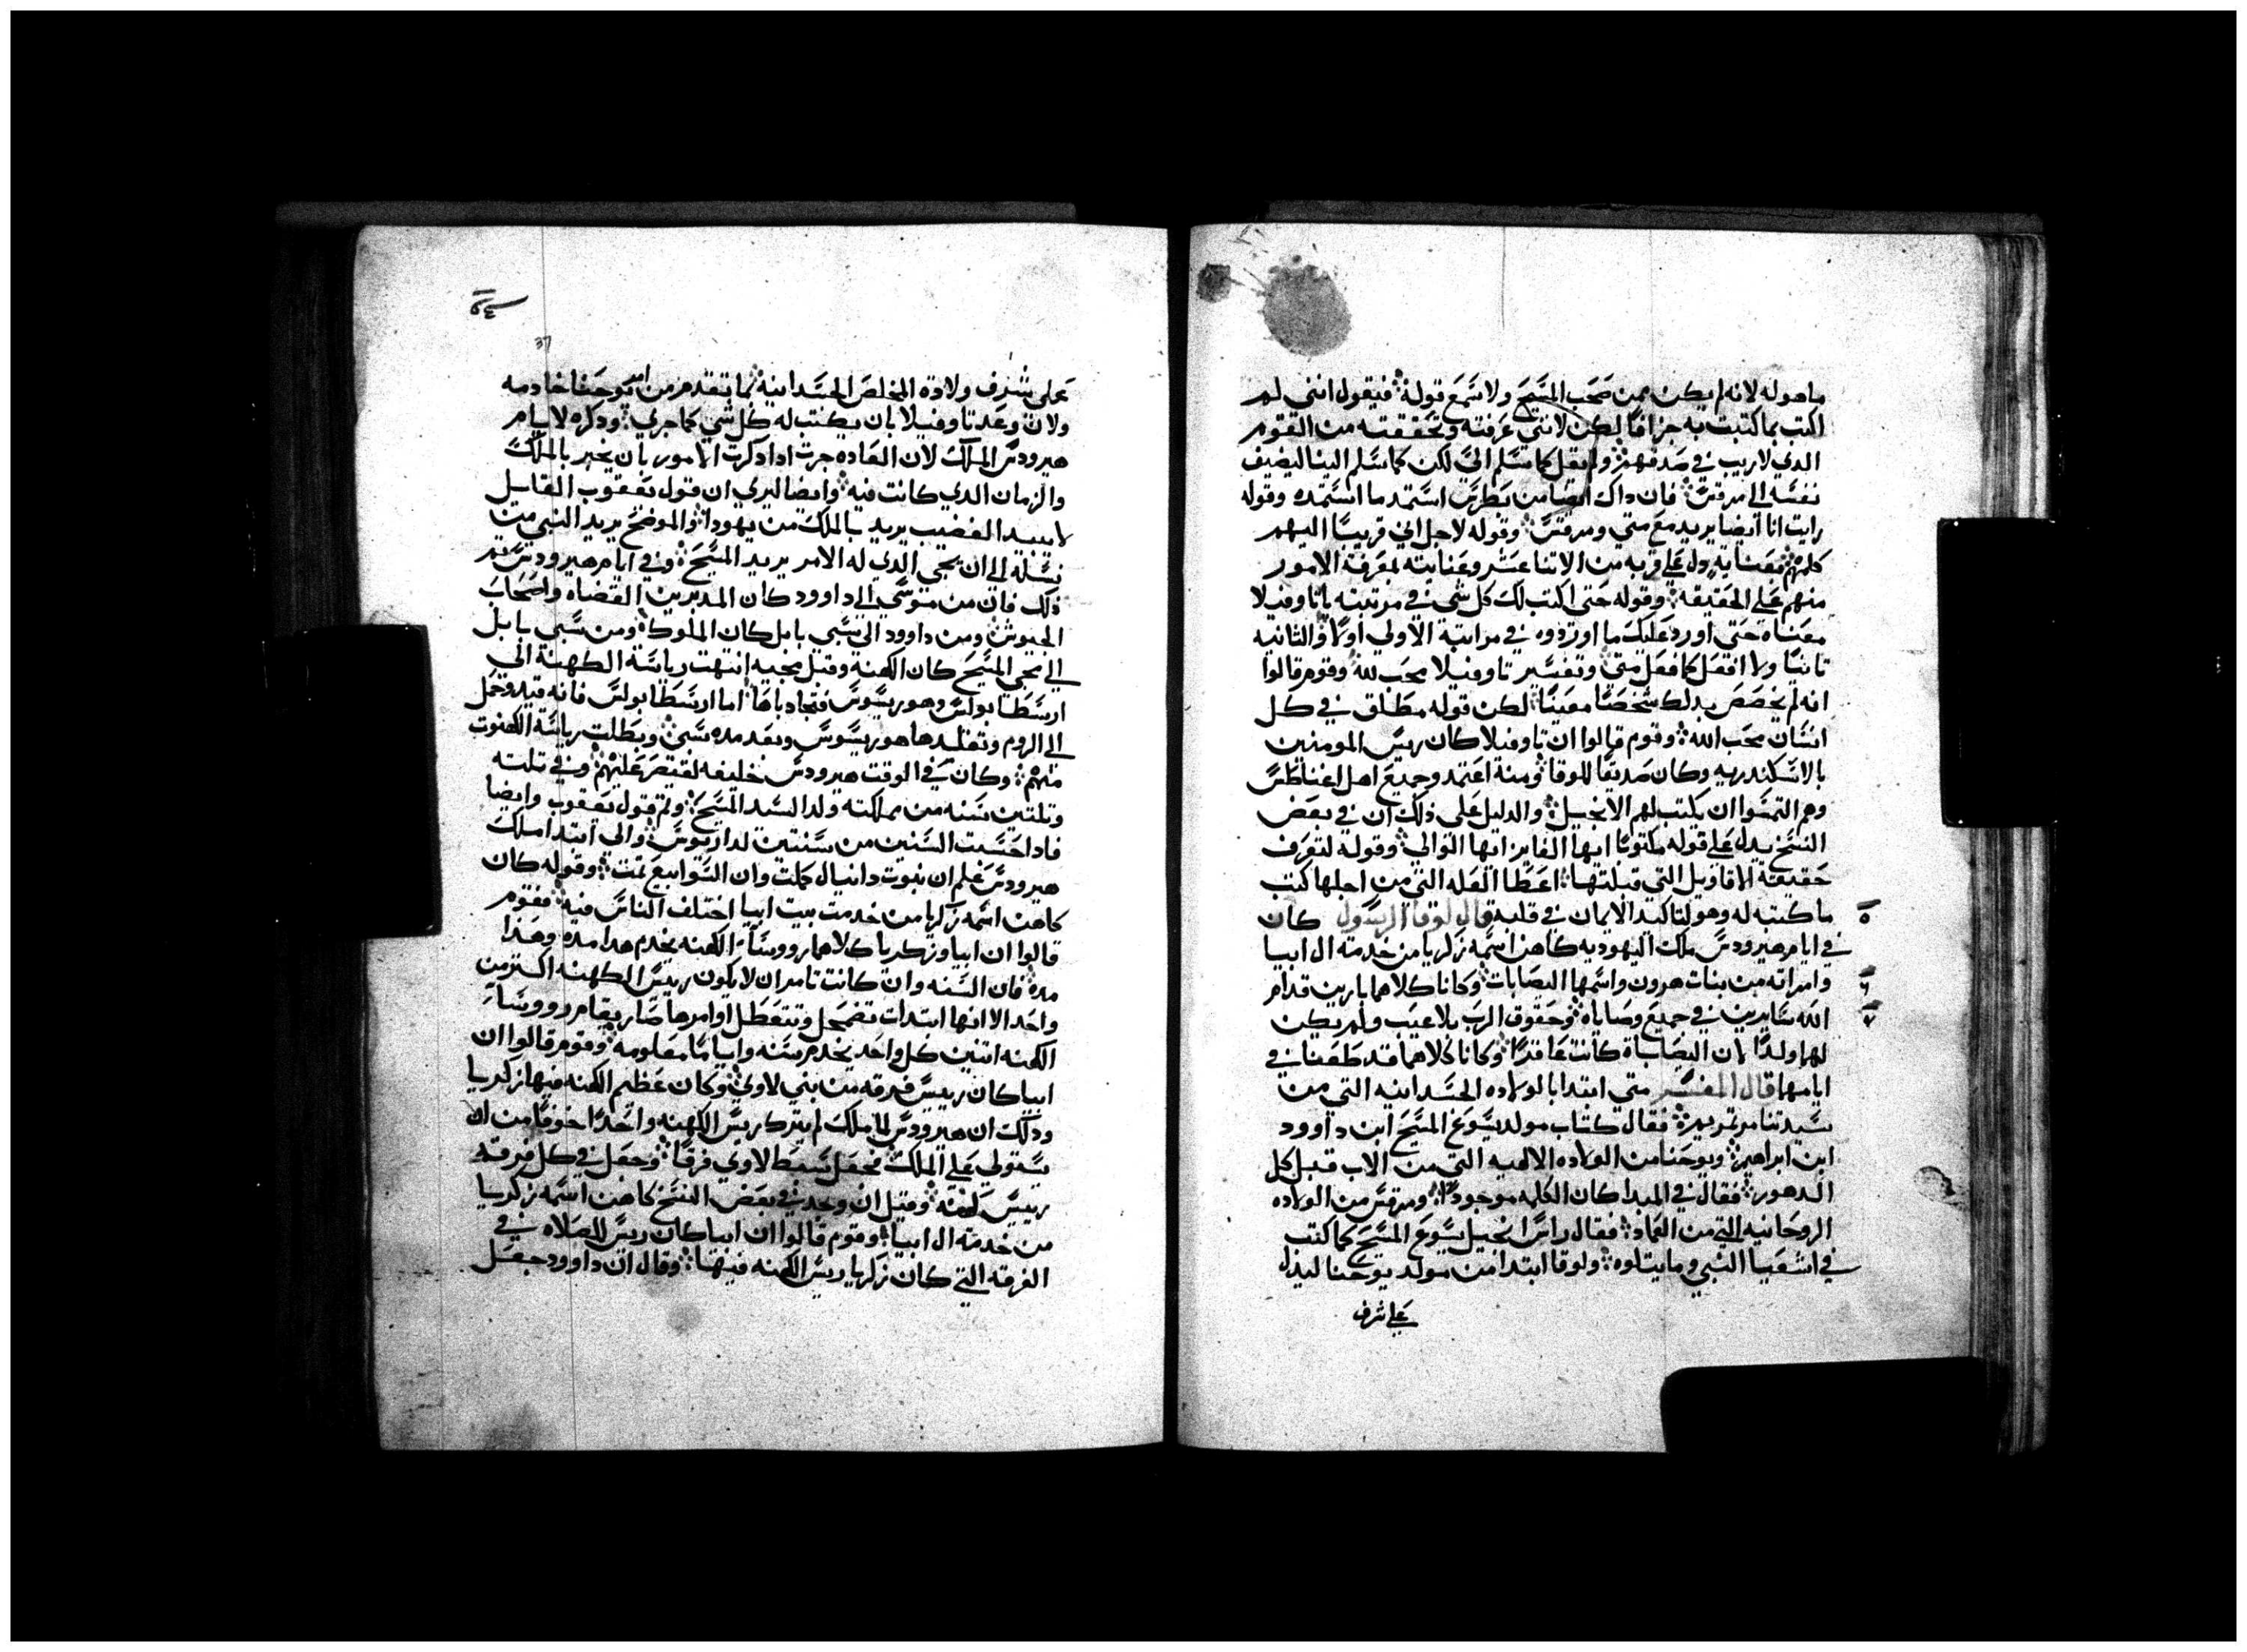 ما هو له لانه لم يكن ممن صحب المسيح ولا سمع قوله فيقول انني لم
اكتب بما كتبت به جزافا لكن لانني عرفته وتحققته من القوم
الدي لا ريب في صدقهم ولم يقل كما سلم الي لكن كما سلم الينا ليضيف
نفسه الي مرقس فان داك ايضا من بطرس استمد ما استمده وقوله
رايت انا ايضا يريد مع متي ومرقس وقوله لاجل اني قريبا اليهم
كلهم فعنا به دل علي قربه من الاتنا عشر وعنايته لمعرفة الامور
منهم علي الحقيقه وقوله حتي اكتب لك كل شي في مرتبته يا تاوفيلا
معناه حتي اورد عليك ما اورده في مراتبة الاولي اولا والثانيه
تانيا ولا افعل كما فعل متي وتفسير تاوفيلا محب لله وقوم قالوا
انه لم يخصص بدلك شخصا معينا لكن قوله مطلق في كل
انسان محب الله وقوم قالوا ان تاوفيلا كان ريس المومنين
بالاسكندريه وكان صديقا للوقا ومنه اعتمد وجميع اهل
وهم التمسوا ان يكتب لهم الانجيل والدليل علي ذلك ان في بعض
النسخ يدل علي قوله مكتوبا ايها الفايز ايها الوالي وقوله لتعرف
حقيقة الاقاويل التي قبلتها اعطا العله التي من اجلها كتب
ما كتبه له وهو لتاكيد الايمان في قلبه قال لوقا الرسول كان ٥
في ايام هيرودس ملك اليهوديه كاهن اسمه زكريا من خدمة ال ابيا
وامراته من بنات هرون واسمها اليصابات وكانا كلاهما بارين قدام ٦
الله سايرين في جميع وصاياه وحقوق الرب بلا عيب ولم يكن ٧
لهما ولدا لان اليصاباة كانت عاقرا وكانا كلاهما قد طعنا في
ايامهما قال المفسر متي ابتدا بالولاده الجسدانيه التي من
سيدتنا مرتمريم فقال كتاب مولد يسوع المسيح ابن داوود
ابن ابراهيم ويوحنا من الولاده الالهيه التي من الاب قبل كل
الدهور فقال في المبدا كان الكلمه موجودا ومرقس من الولاده
الروحانيه التي من العماد فقال راس انجيل يسوع المسيح كما كتب
في اشعيا النبي وما يتلوه ولوقا ابتدا من مولد يوحنا ليدل
علي شرف
37
علي شرف ولادة المخلص الجسدانيه بما تقدم من امر يوحنا خادمه
ولان وعد تاوفيلا بان يكتب له كل شي كما جري ودكره لايام
هيرودس الملك لان العاده جرت ادا دكرت الامور بان يخبر بالملك
والزمان الدي كانت فيه وايضا ليري ان قول يعقوب القايل
لا يبيد القضيب يريد بالملك من يهودا والموضح يريد النبي من
نسله الي ان يجي الدي له الامر يريد المسيح وفي ايام هيرودس تم
ذلك فان من موسي الي داوود كان المدبرين القضاه واصحاب
الجيوش ومن داوود الي سبي بابل كان الملوك ومن سبي بابل
الي مجي المسيح كان الكهنة وقبل مجيه انتهت رياسة الكهنة الي
ارسطابولس وهوريسوس اما ارسطابولس فانه قيد وحمل
الي الروم وتقلدها هوريسوس وبعد مده سبي وبطلت رياسة الكهنوت
منهم وكان في الوقت هيرودس خليفه لقيصر عليهم وفي تلته
وتلتين سنه من مملكته ولد السيد المسيح وتم قول يعقوب وايضا
فادا حسبت السنين من سنتين لداريوس والي ابتدا ملك
هيرودس علم ان نبوت دانيال كملت وان السوابيع تمت وقوله كان
كاهن اسمه زكريا من خدمت بيت ابيا اختلف الناس فيه فقوم
قالوا ان ابيا وزكريا كلاهما رووسا الكهنه يخدم هدا مده وهدا
مده فان السنه وان كانت تامر ان لا يكون رييس الكهنه اكتر من
واحد الا انها ابتدات تضمحل وتتعطل اوامرها صار يقام رووسا
الكهنه اتنين كل واحد يخدم سنه واياما معلومه وقوم قالوا ان
ابيا كان رييس فرقه من بني لاوي وكان عظيم الكهنه فيها زكريا
ودلك ان هيرودس لما ملك لم يترك ريس الكهنه واحدا خوفا من ان
يستولي علي الملك فجعل سبط لاوي فرقا وجعل في كل فرقه
رييس كهنه وقيل ان وجد في بعض النسخ كاهن اسمه زكريا
من خدمة ال ابيا وقوم قالوا ان ابيا كان ريس للصلاه في
الفرقه التي كان زكريا ريس الكهنه فيها وقال ان داوود جعل